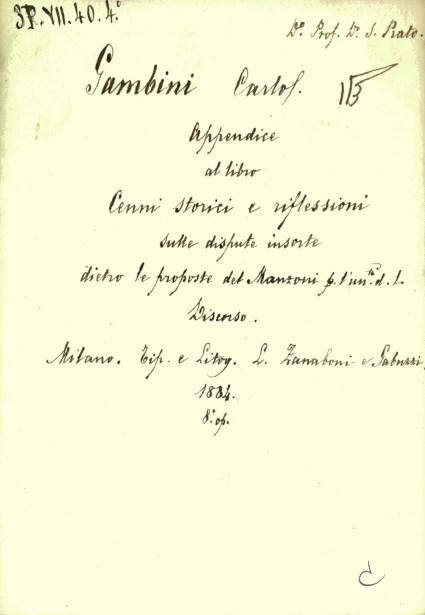 3P.VII.40.4°
D° Prof. D. S. Prato.
Gambini Carlo.
Appendice
al libro
Cenni storici e riflessioni
sulle dispute insorte
dietro le proposte del Manzoni p. l'un.tà d. l.
Discorso.
Milano. Tip. e Litog. L. Zanaboni e Gabuzzi,
1884.
8° op.